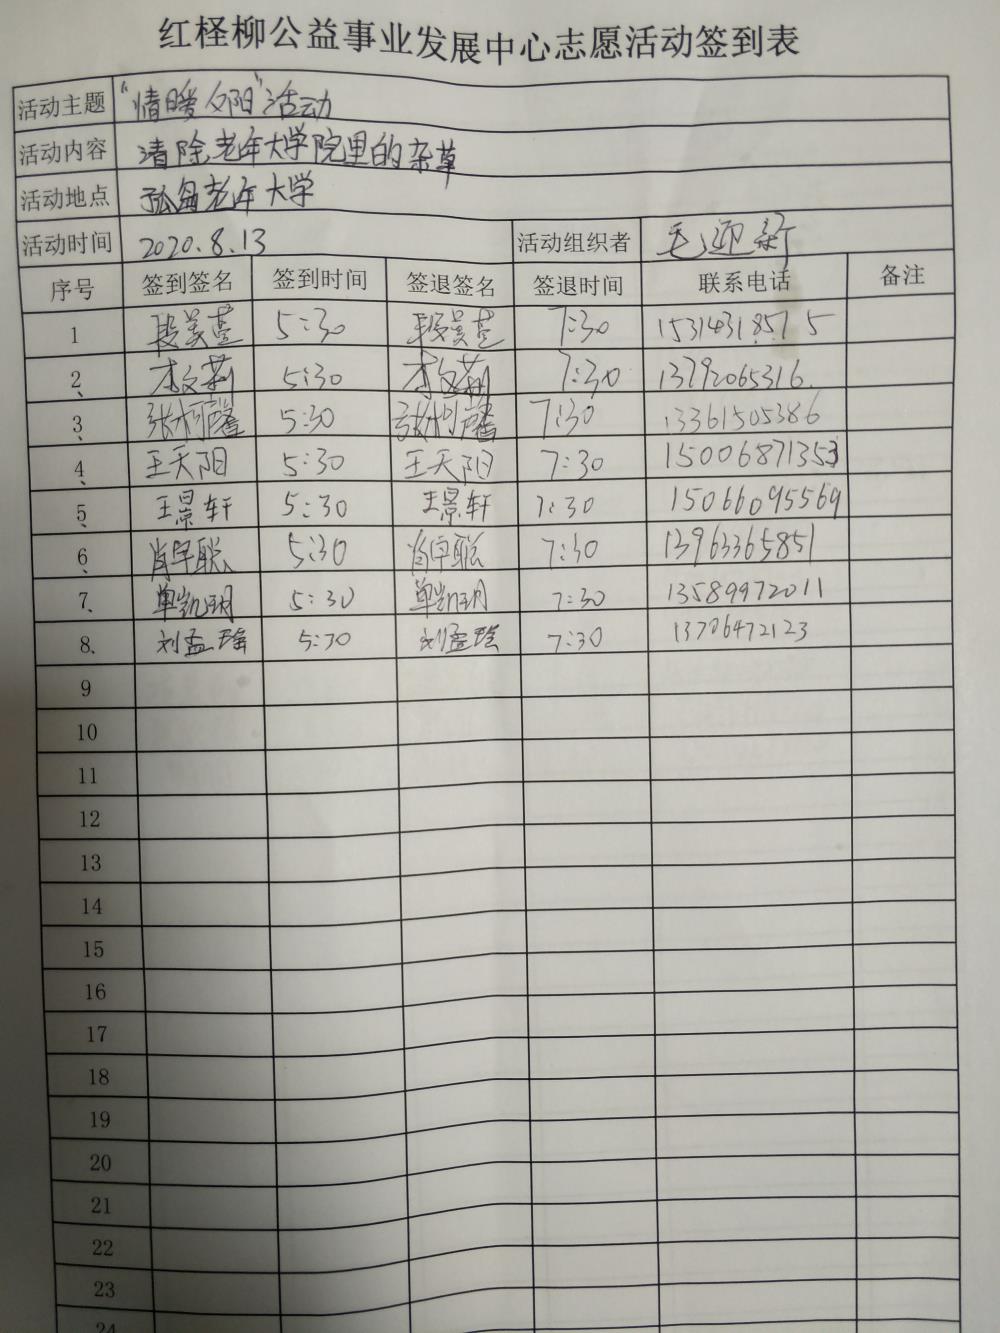 红柽柳公益事业发展中心志愿活动签到表
活动主题 “情暖夕阳”活动
活动内容 清除老年大学院里的杂草
活动地点 孤岛老年大学
活动时间 2020.8.13 活动组织者 毛迎新
序号 签到签名 签到时间 签退签名 签退时间 联系电话 备注
1 段美萱 5:30 段美萱 7:30 15314318575
2、 李文莉 5:30 李文莉 7:30 13792065316.
3、 张柯馨 5:30 张柯馨 7:30 13361505386
4、 王天阳 5:30 王天阳 7:30 15006871353
5、 王景轩 5:30 王景轩 7:30 15066095569
6、 肖宇聪 5:30 肖宇聪 7:30 13963365851
7、 单凯玥 5:30 单凯玥 7:30 13589972011
8、 刘孟瑶 5:30 刘孟瑶 7:30 13706472123
9
10
11
12
13
14
15
16
17
18
19
20
21
22
23
24